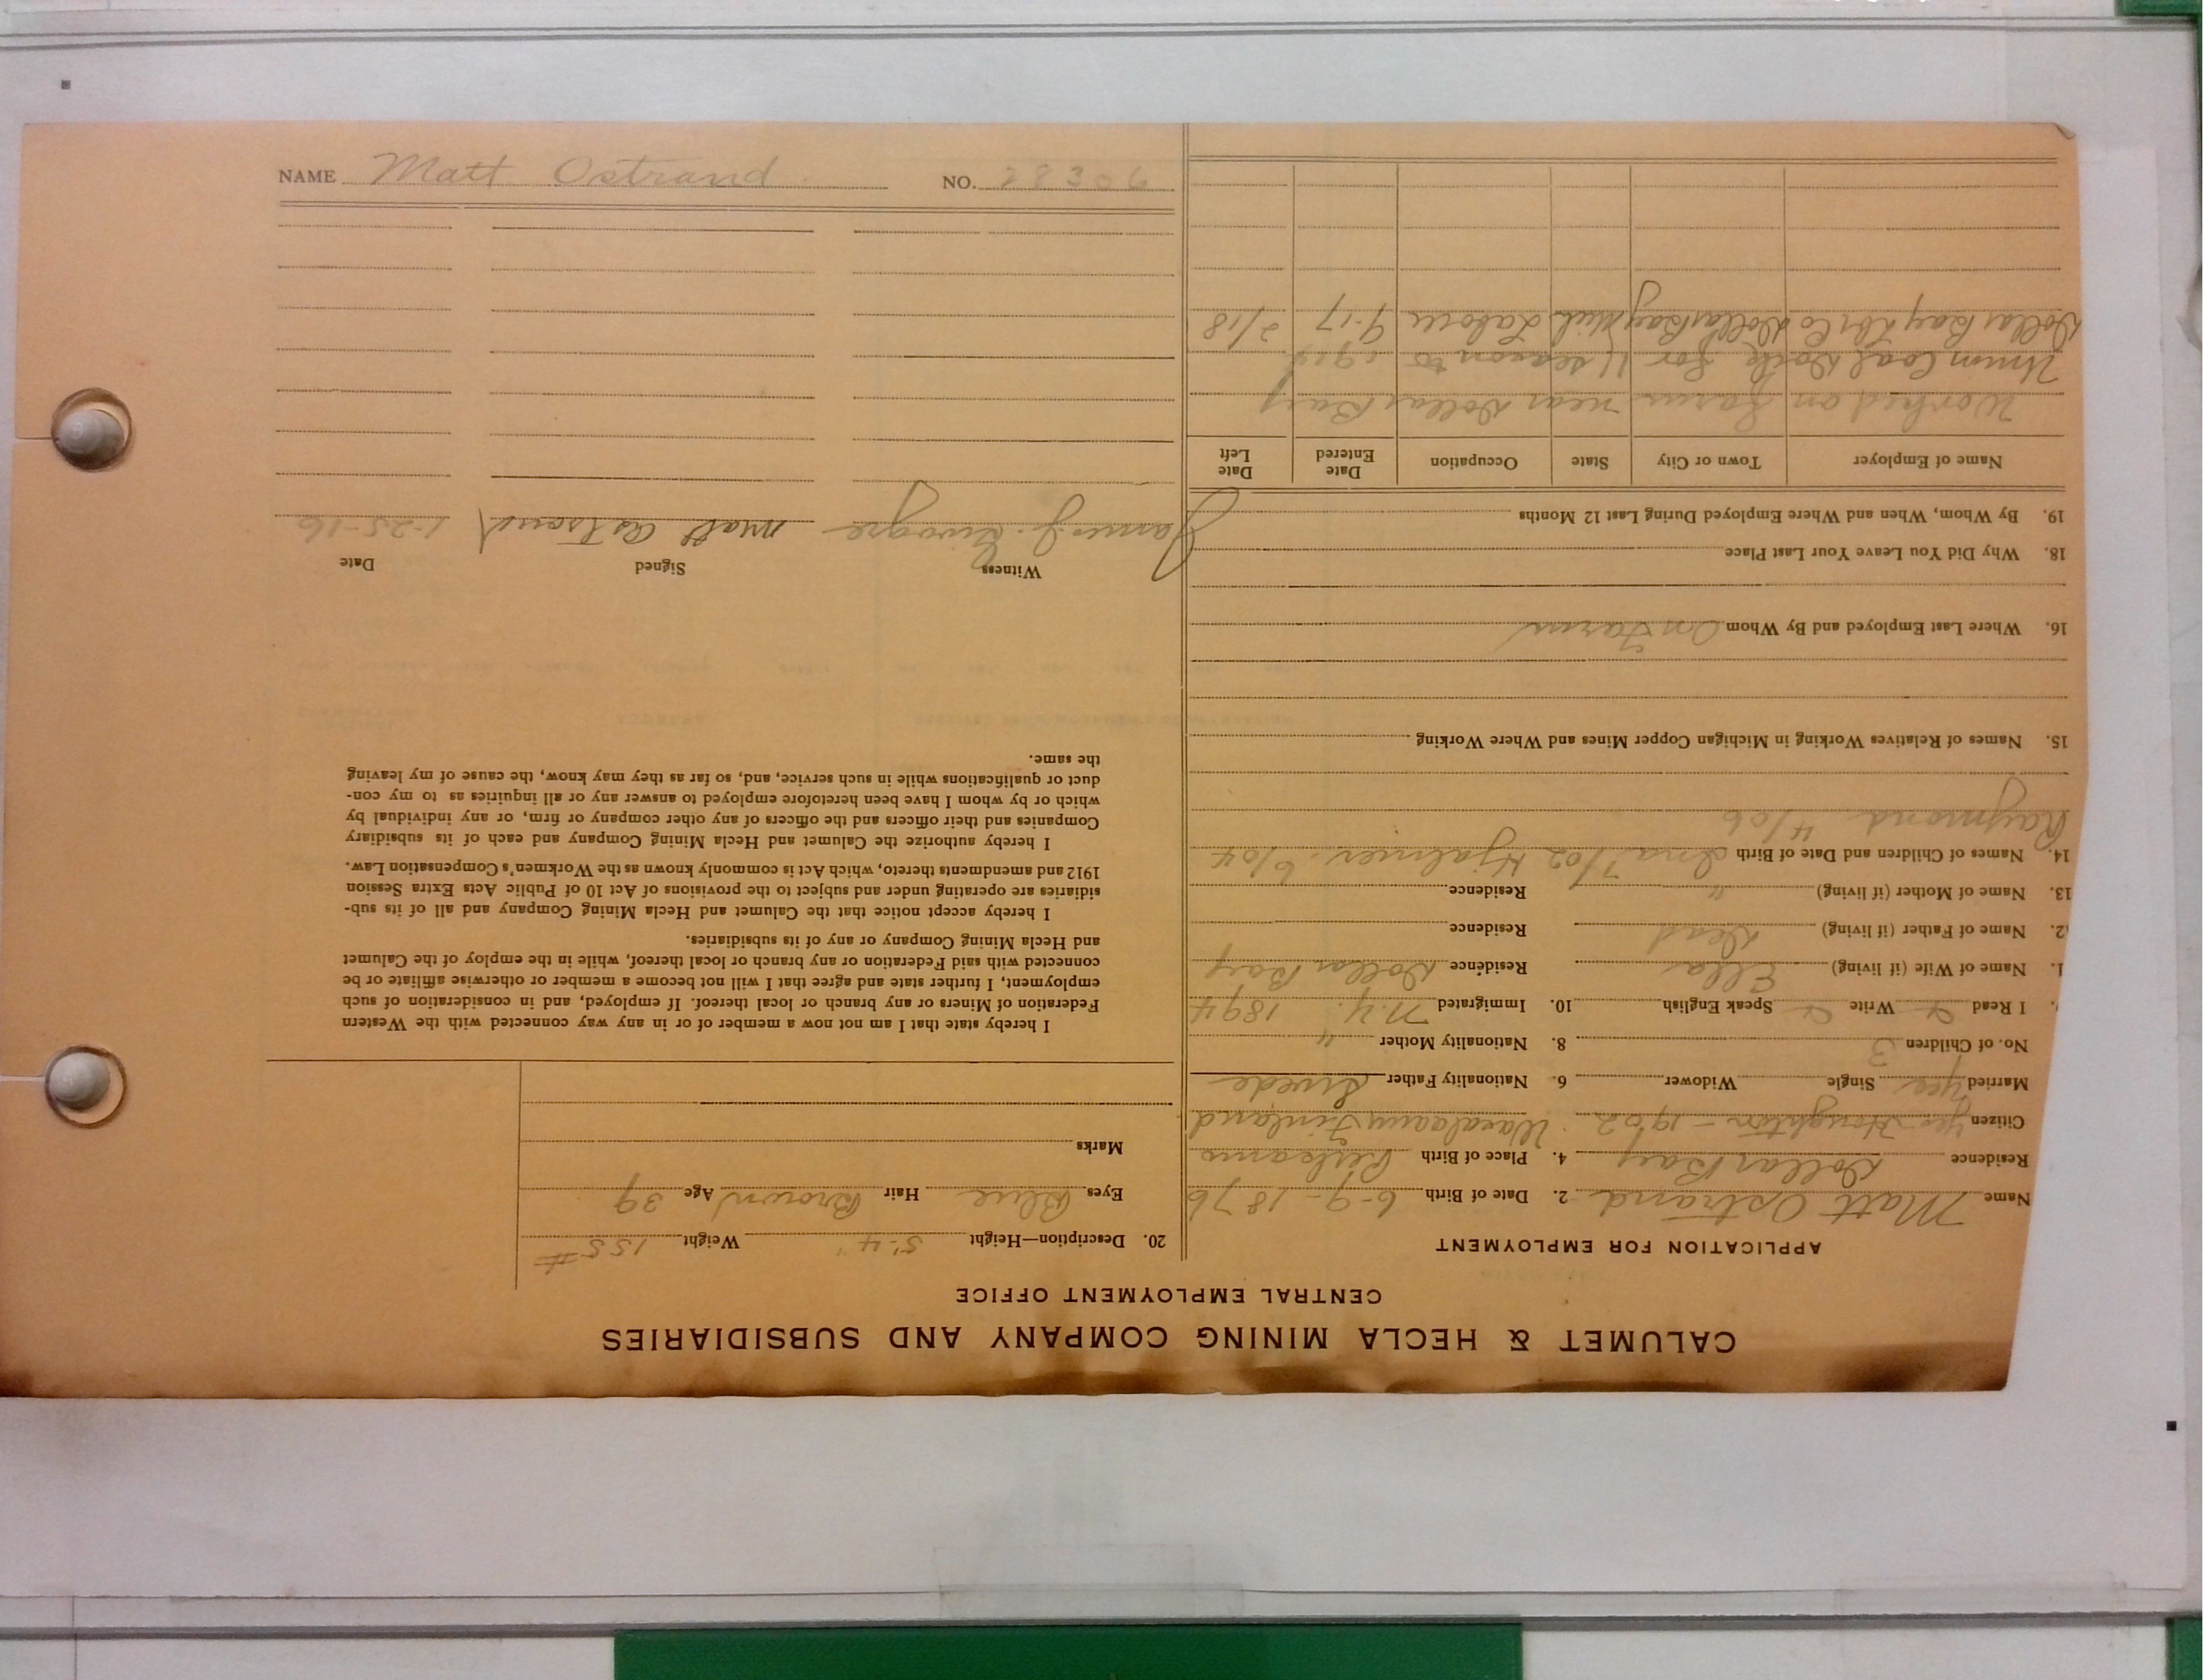 CALUMET & HECLA MINING COMPANY AND SUBSIDIARIES
CENTRAL EMPLOYMENT OFFICE
APPLICATION FOR EMPLOYMENT
Name Matt Ostrand 2. Date of Birth 6-9-1876
Residence Dollar Bay 4. Place of Birth
Citizen yes Houghton - 1902 Finland
Married yes Single Widower 6. Nationality Father Swede
No. of Children 3 8. Nationality Mother "
I Read Write Speak English 10. Immigrated N.Y. 1894
1. Name of Wife (if living) Ella Residence Dollar Bay
2. Name of Father (if living) Dead Residence
13. Name of Mother (if living) " Residence
14. Names of Children and Date of Birth Ina 7/02 Hjalmer 6/04
Raymond 4/06
15. Names of Relatives Working in Michigan Copper Mines and Where Working
16. Where Last Employed and By Whom On Farm
18. Why Did You Leave Your Last Place
19. By Whom, When and Where Employed During Last 12 Months
Name of Employer Town or City State Occupation Date Entered Date Left
Worked on farm near Dollar Bay
Union Coal Dock for 11 season to 1914
Dollar Bay Lbr Co Dollar Bay Mich Labor 9-17 2/18
20. Description—Height 5'-4" Weight 155 #
Eyes Blue Hair Brown Age 39
Marks
I hereby state that I am not now a member of or in any way connected with the Western
Federation of Miners or any branch or local thereof. If employed, and in consideration of such
employment, I further state and agree that I will not become a member or otherwise affiliate or be
connected with said Federation or any branch or local thereof, while in the employ of the Calumet
and Hecla Mining Company or any of its subsidiaries.
I hereby accept notice that the Calumet and Hecla Mining Company and all of its sub-
sidiaries are operating under and subject to the provisions of Act 10 of Public Acts Extra Session
1912 and amendments thereto, which Act is commonly known as the Workmen's Compensation Law.
I hereby authorize the Calumet and Hecla Mining Company and each of its subsidiary
Companies and their officers and the officers of any other company or firm, or any individual by
which or by whom I have been heretofore employed to answer any or all inquiries as to my con-
duct or qualifications while in such service, and, so far as they may know, the cause of my leaving
the same.
Witness Signed Date
James J. Matt Ostrand 1-25-16
NAME Matt Ostrand NO. 28306